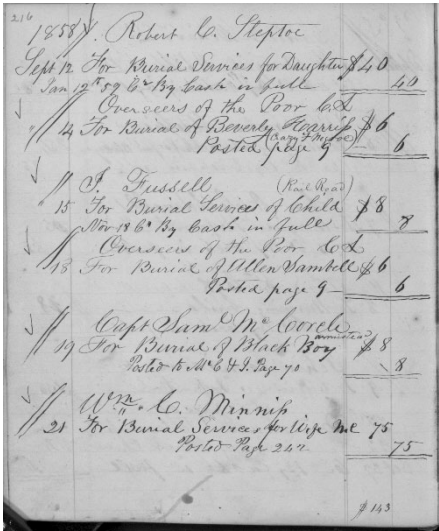 216
1858 Robert C. Steptoe
Sept 12 For Burial Services for Daughter $40
Jan 12th 59 Cr By Cash in full 40
Overseers of the Poor C.L
14 For Burial of Beverly Harriss $6
(Crazy Negroe)
Posted page 9 — 6
J. Fussell (Rail Road)
15 For Burial Services of Child $8
Nov 18 Cr By Cash in full 8
Overseers of the Poor C L
18 For Burial of Allen Sambell $6
Posted page 9 — 6
Capt Saml McCorcle
19 For Burial of Black Boy armistead $8
Posted to McC & J. Page 70 8
Wm C. Minniss
21 For Burial Services for Wife Me 75
Posted Page 247 75
$143